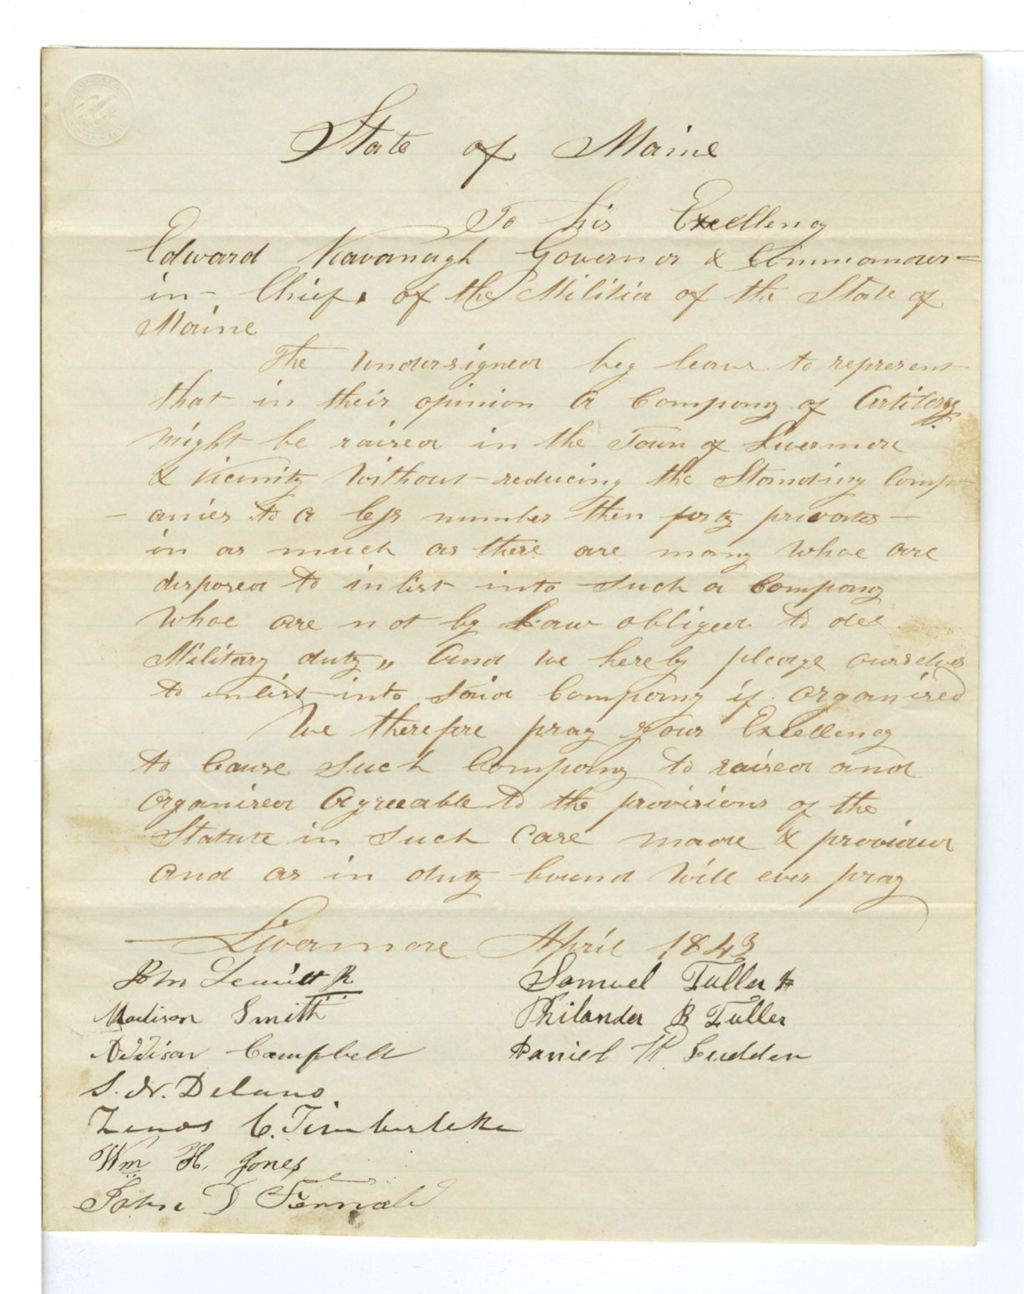 State of Maine
To his Excellency
Edward Kavanagh Governor & Commander=
in-Chief. of the Militia of the State of
Maine
The undersigned beg leave to represent
that in their opinion a Company of Artillery
might be raised in the Town of Livermore
& vicinity without reducing the Standing Comp-
-anies to a less number then forty privates-
in as much as there are many whoe are
disposed to inlist into such a Company
whoe are not by Law obliged to doe
Military duty,, And we hereby pledge ourselves
to inlist into said Company if organised
We therefore pray your Excellency
to Cause such Company to raised and
organised Agreeable to the provisions of the
Statute in such case made & provided
and as in duty bound will ever pray
Livermore April 1843
John Leavitt Jr Samuel Fuller
Madison Smith Philander B Fuller
Addison Campbell Daniel W Ludden
S. N. Delano
Zenas C. Timberlake
Wm H. Jones
John D Fernald